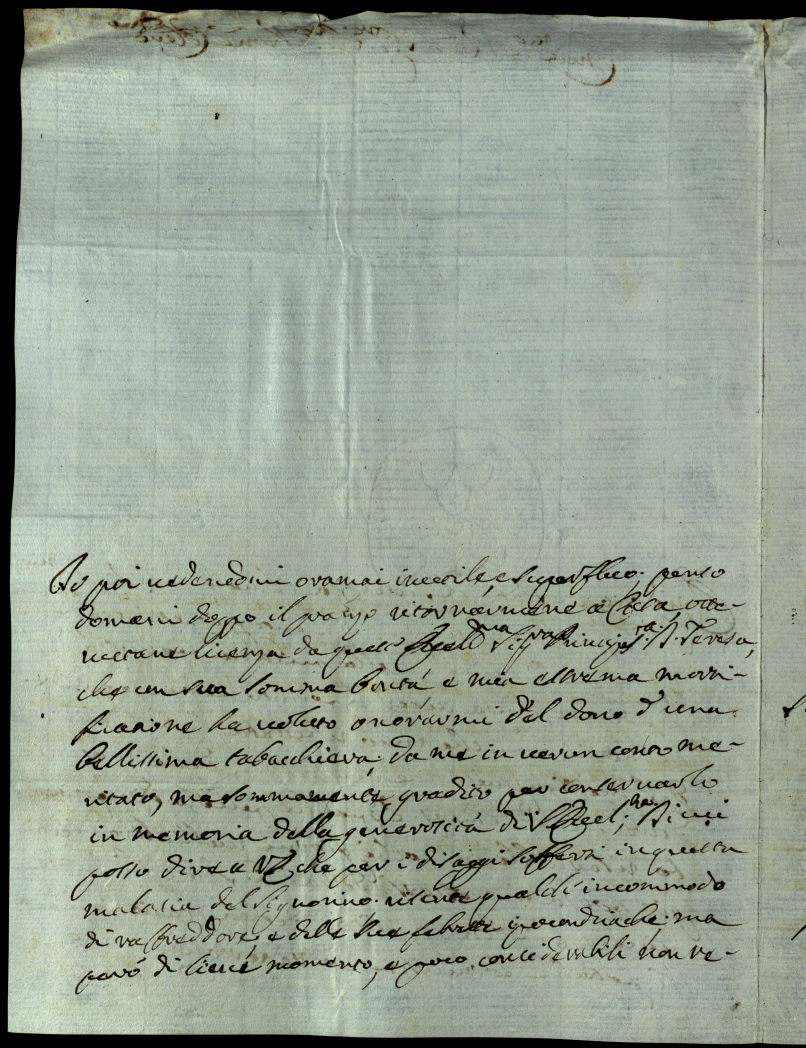 Io poi vedendomi oramai inutile, e superfluo, penso
domani doppo il pranzo ritornarmene a Casa, otte-
nutane licenza da quest' Eccell.ma Sig.ra Princip.ssa D. Teresa,
che con sua somma bontà e mia estrema morti-
ficazione ha voluto onorarmi del dono d'una
bellissima tabacchiera, da me in verun conto me-
ritato, ma sommamente gradito per conservarlo
in memoria della generosità di S. Eccel.za Di cui
posso dire a VE che per i disaggi sofferti in questa
malatia del Signorino risente qualche incommodo
di raffreddore, e delle sue febrette ipocondriache ma
però di lieve momento, e poco considerabili non ve-